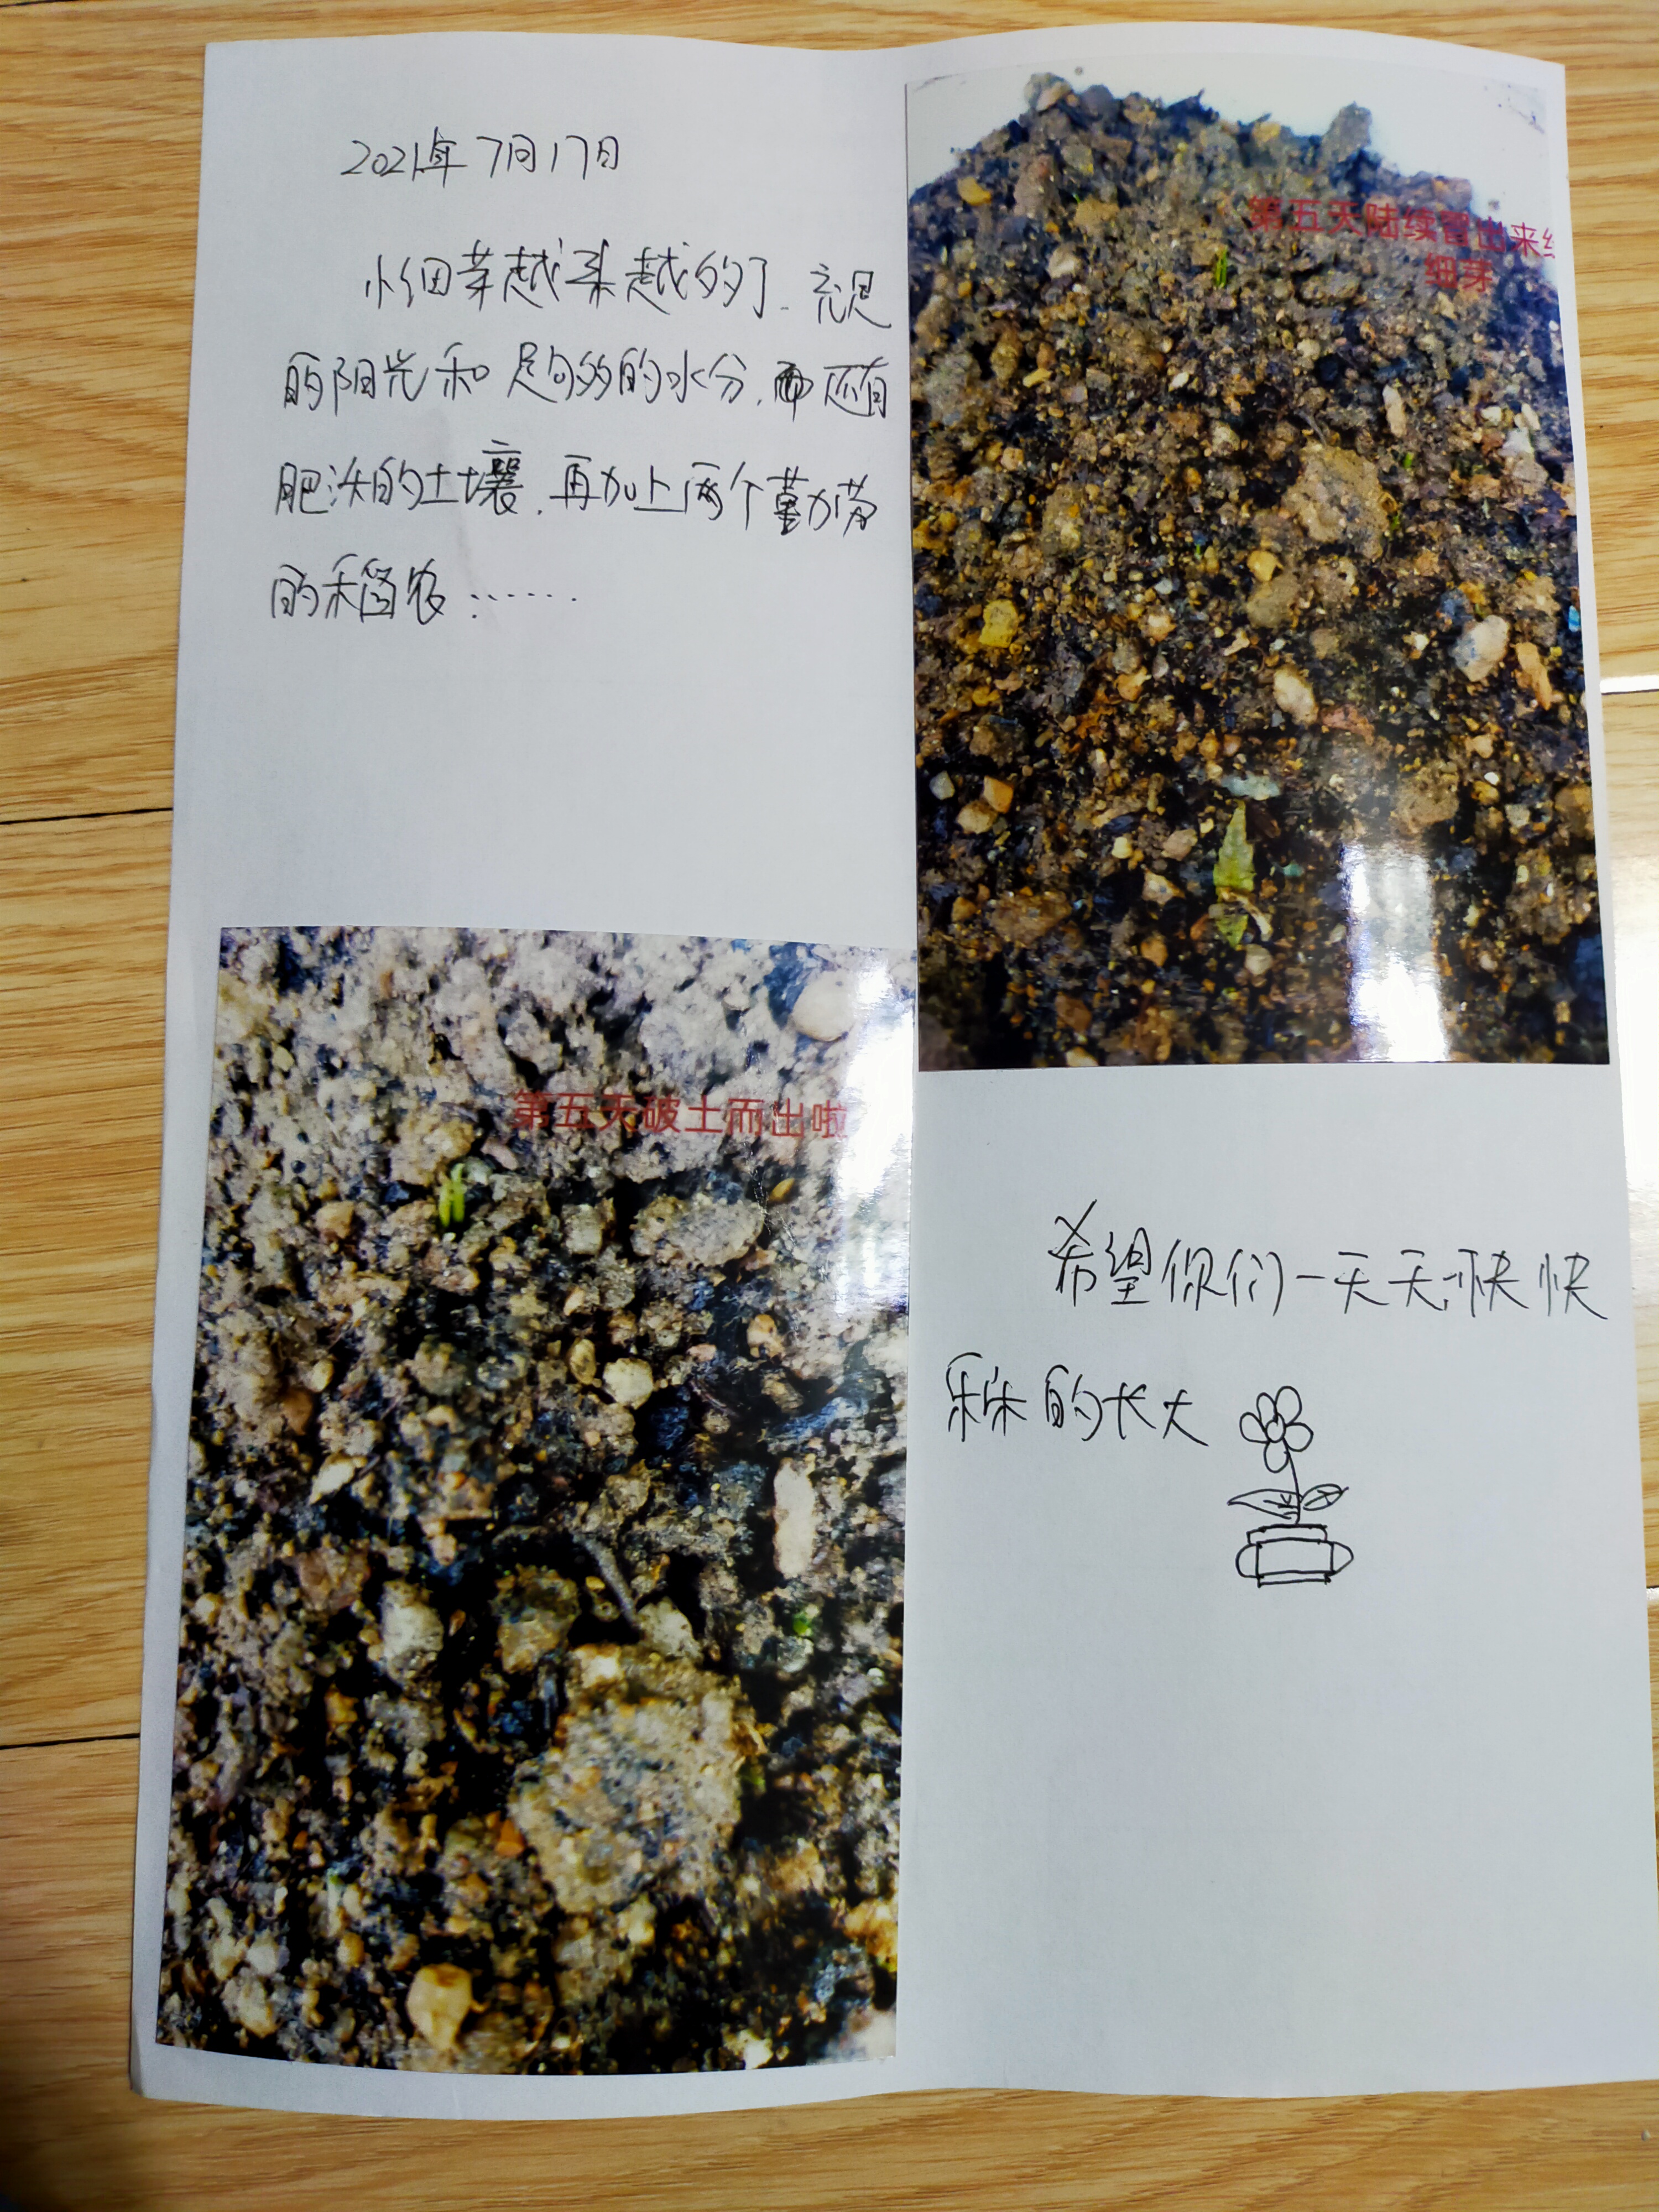 2021年7月17日
小细芽越来越多了.充足
的阳光和足够多的水分.还有
肥沃的土壤.再加上两个勤劳
的稻农:……
第五天陆续冒出来
细芽
第五天破土而出啦
希望你们一天天快快
乐乐的长大